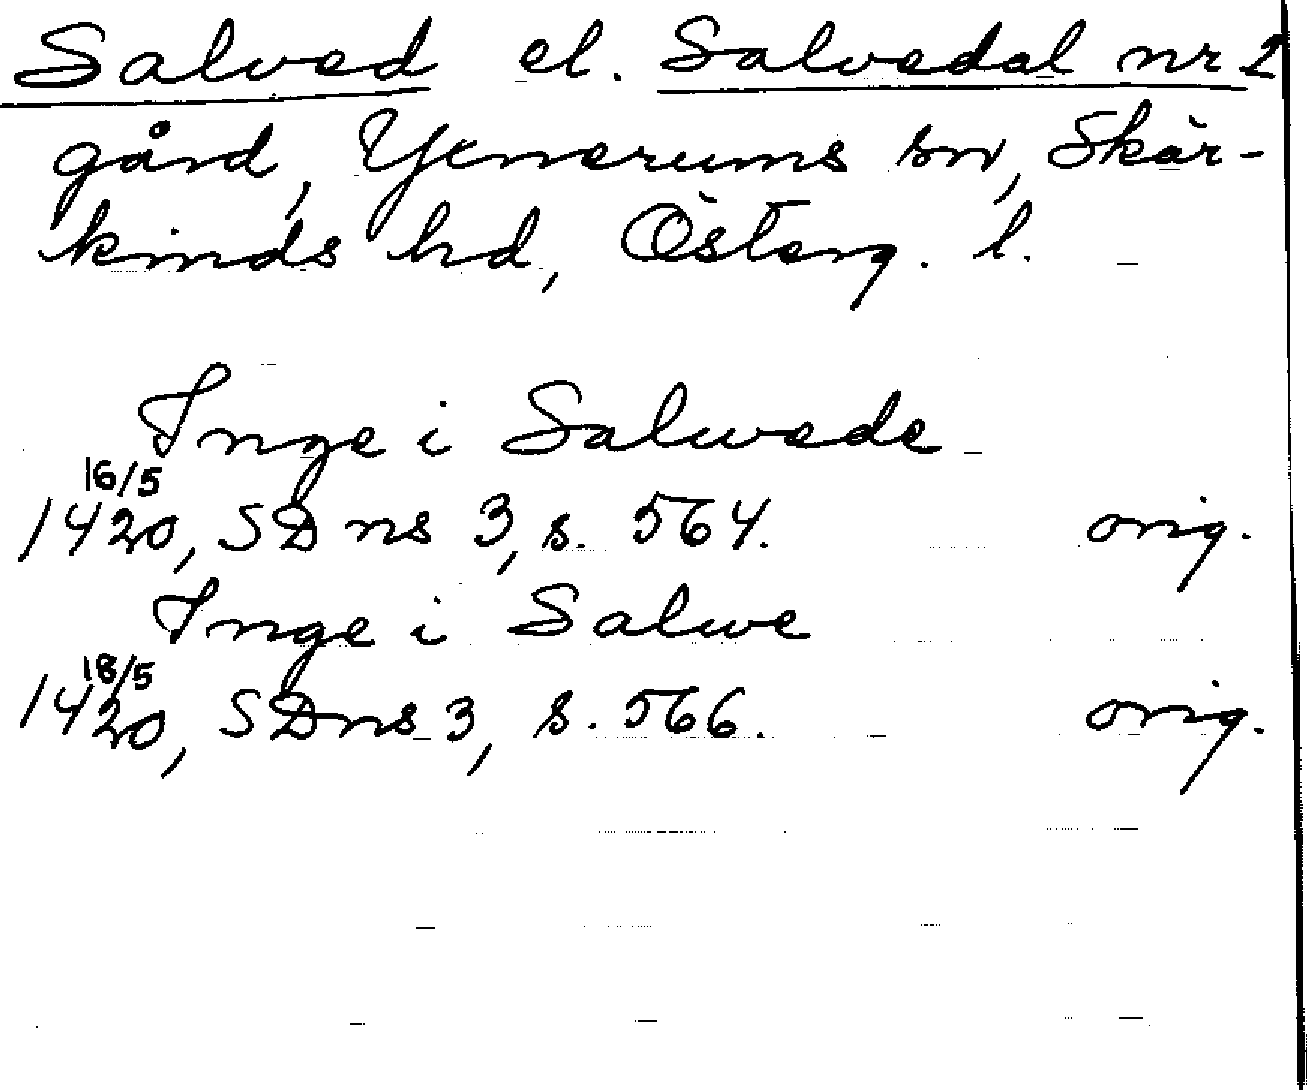 Salved el. Salvedal nr 2
gård, Yxnerums sn, Skär-
kinds hd, Österg. l.
Inge i Salwede
16/5
1420, SD ns 3, s. 564. orig.
Inge i Salwe
18/5
1420, SD ns 3, s. 566. orig.